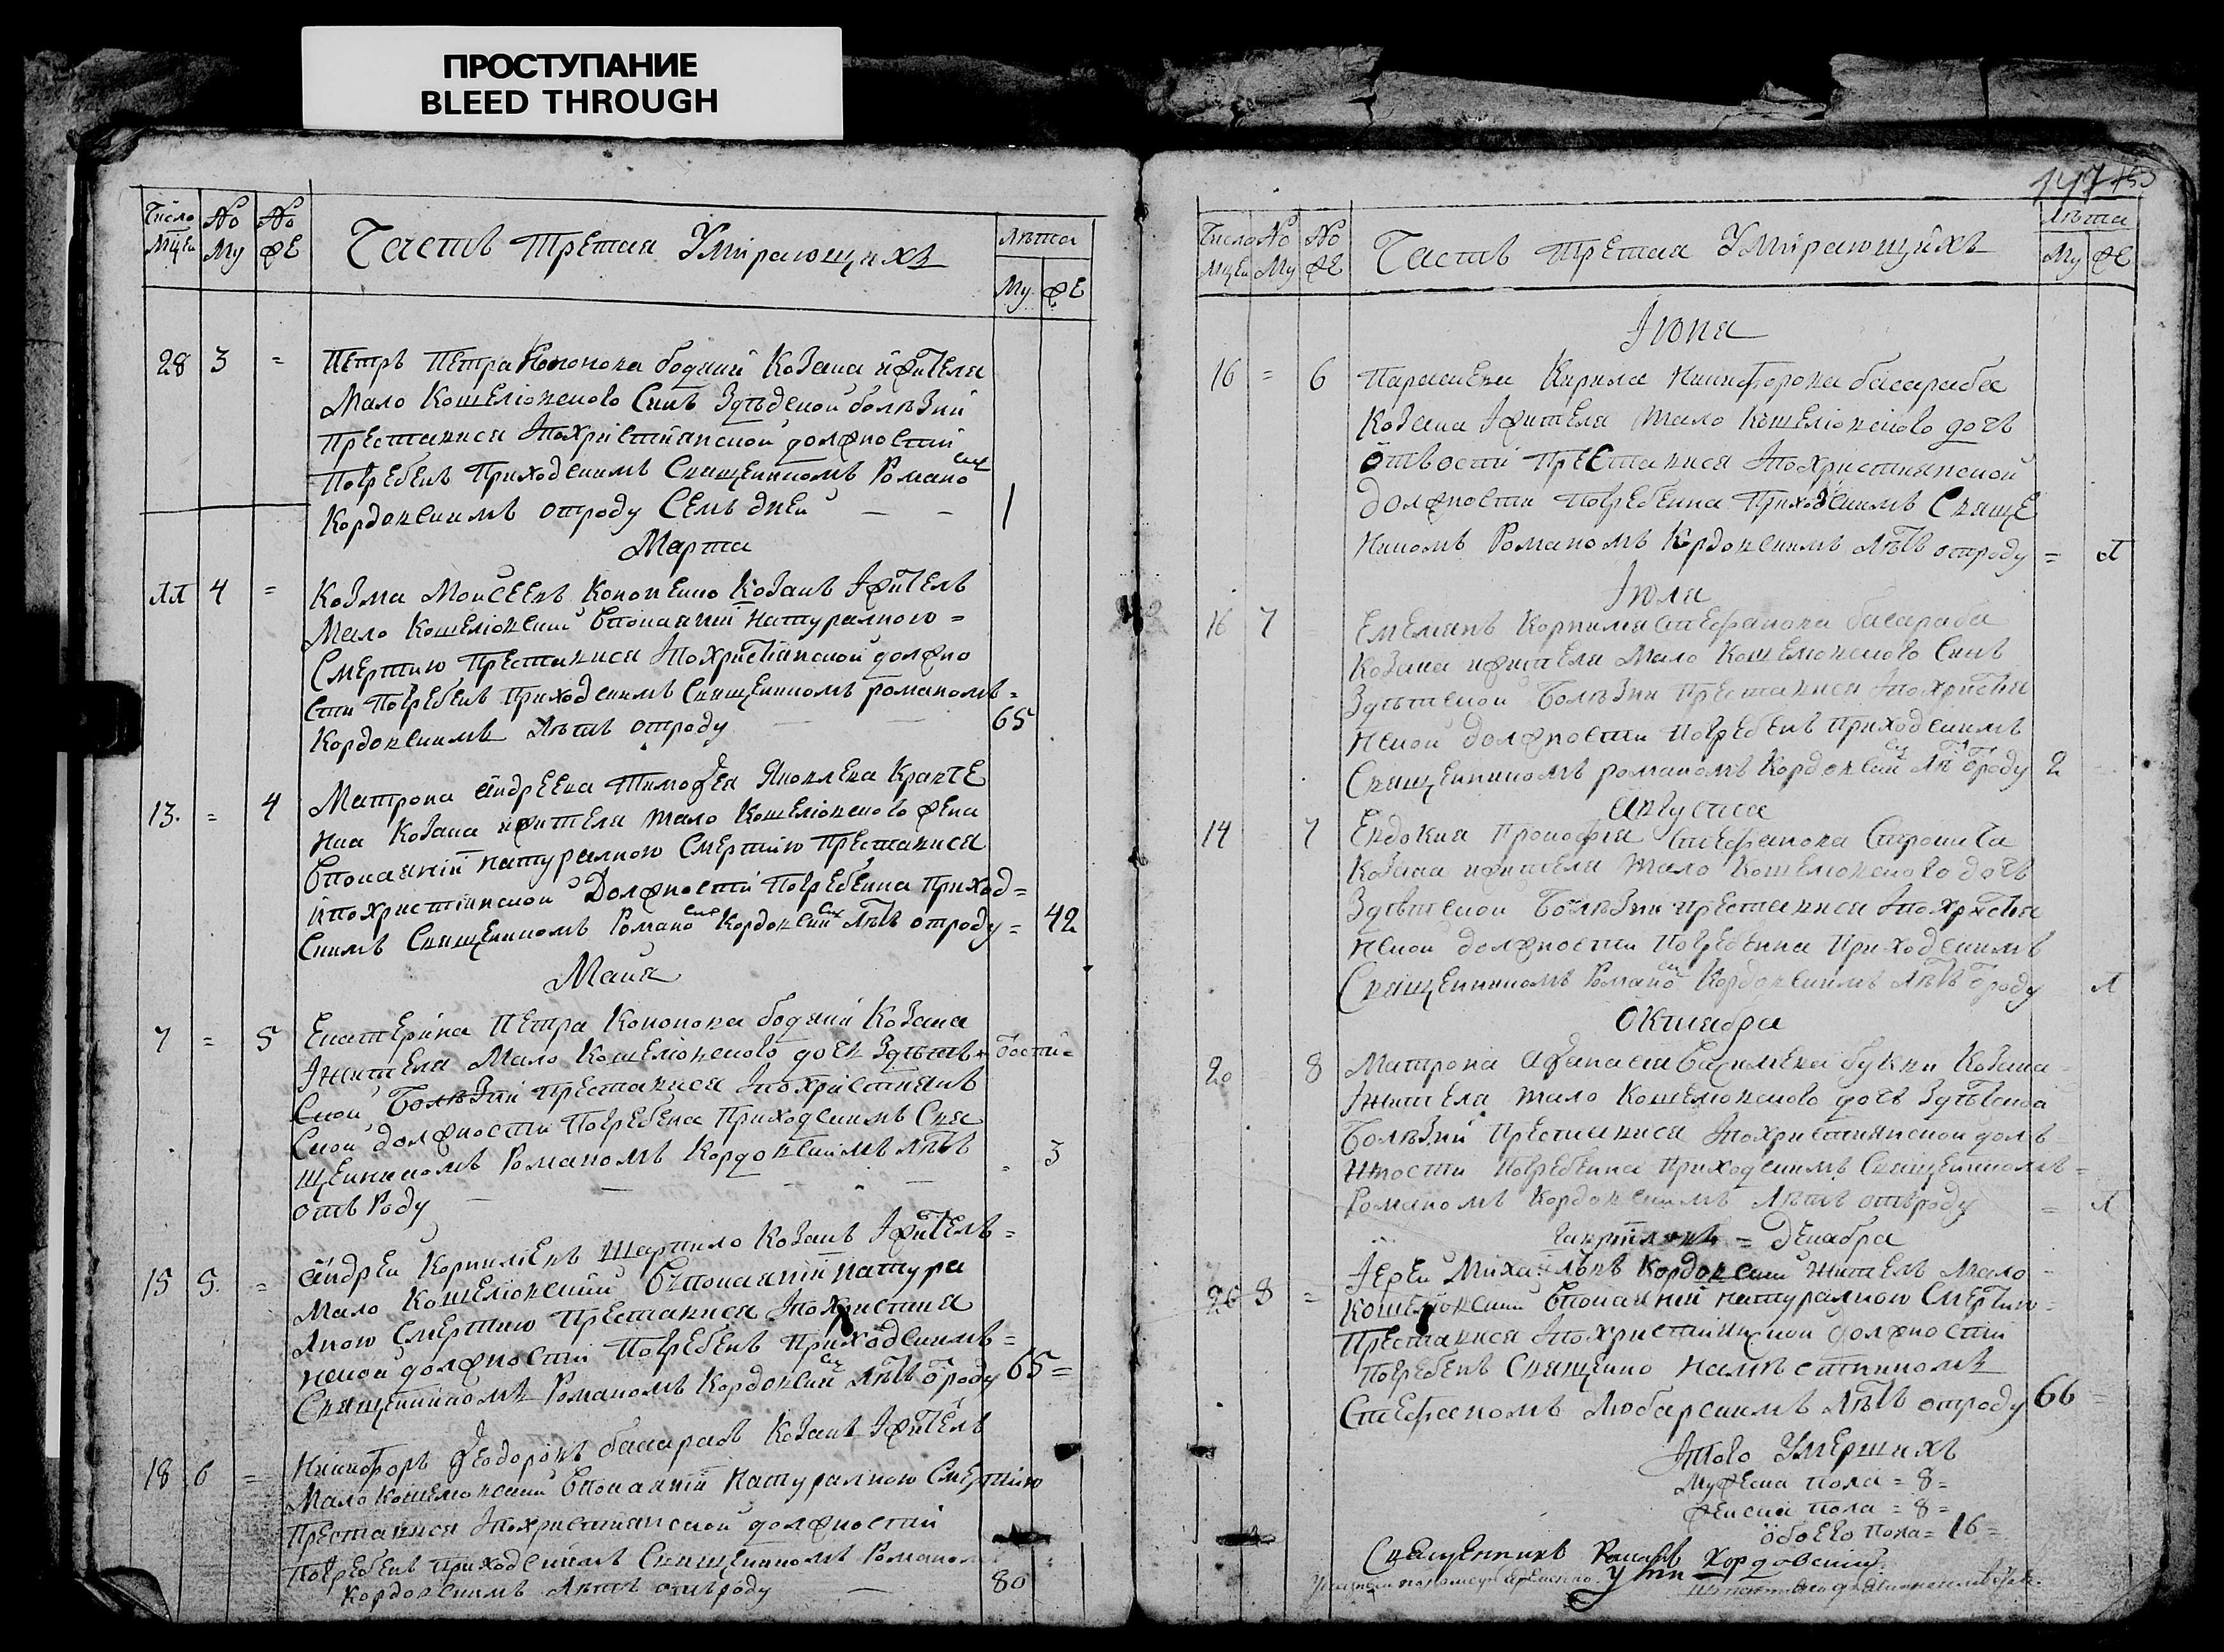 ПРОСТУПАНИЕ
BLEED THROUGH
147
Число No No Часть третая Умирающихъ Лѣта
мцси Му Же Му Же
28 3 = Петръ Петра Кононова бодний Козака ижителя
Мало Кошелювского Синъ Здѣцкой болѣзни
Преставися Ипохристиянской должности
Погребенъ Приходскимъ Священникомъ Романо
Кордовскимъ отроду Семъ дней — — 1
Марта
4 = Козма Моисеевъ Кононенко Козакъ Ижитель
Мало Кошелювский Впокаянии натуралною =
Смертию Преставися Ипохристіанской должно
сти Погребенъ Приходскимъ Священникомъ романомъ =
Кордовскимъ Лѣтъ отроду — — 65
13. = 4 Матрона Андреева Тимофея Яковлева Кравче
нка Козака ижителя мало Кошелювского жена
Впокаянии натуралною Смертию Преставися
ипохристиянской Должности Погребенна Приход =
скимъ Священникомъ Романо Кордовски Лѣтъ отроду = 42
Маия
7 = 5 Екатерина Петра Кононова бодний Козака
Ижителя Мало Кошелювского дочъ
Болѣзни Преставися Ипохристиянъ
ской должности Погребена Приходскимъ Свя
щенникомъ Романомъ Кордовскимъ лѣтъ = 3
отъ Роду — — — —
15 5. = Андрей Корнилиевъ Шарпило Козакъ Ижитель =
Мало Кошелювский Впокаянии натура
лною Смертию Преставися Ипохристия
нской должности Погребенъ Приходскимъ =
Священникомъ Романомъ Кордовски Лѣтъ ѿроду 65 =
18 6 = Никифоръ Феодоровъ басарабъ Козакъ Ижитель
Мало Кошелювский Впокаянии Натуралною Смертию
Преставися Ипохристиянской должности
Погребенъ приходскимъ Священникомъ Романом
Кордовскимъ Лѣтъ отъроду — 80
Число No No Часть третая Умирающихъ Лѣта
мцси Му Же Му Же
Июня
16 = 6 Параскева Кирила Никифорова басараба
Козака Ижителя Мало Кошелювского дочъ
Преставися Ипохристиянской
Должности Погребенна Приходскимъ Свяще
нникомъ Романомъ Кордовскимъ лѣтъ отроду = Л
Июля
16 7 Емелианъ Корнила Стефанова басараба
Козака ижителя Мало Кошелювского Синъ
Здѣтской Болѣзни Преставися Ипохристия
нской должности Погребенъ Приходскимъ
Священникомъ романомъ Кордовски Лѣ ѿроду 2
Августа
14 7 Евдокия Прокофия Стефанова
Козака ижителя Мало Кошелювского дочъ
Здѣтской Болѣзни преставися Ипохристия
нской должности Погребенна Приходскимъ
Священникомъ Романо Кордовскимъ лѣтъ ѿроду Л
Октября
20 8 Матрона Афанасия Василиева Козака
Ижителя Мало Кошелювского дочъ
Болѣзни Преставися Ипохристиянской долъ
жности Погребенна Приходскимъ Священникомъ =
Романомъ Кордовскимъ Лѣтъ отъроду = Л
= Декабря
26 8 = Иерей Михаилъ Кордовский Житель Мало
Кошелювский Впокаянии натуралною Смертию =
Преставися Ипохристиянской должности
Погребенъ Священно Намѣстникомъ
Стефаномъ Любарскимъ Лѣтъ отроду 66 =
Итого Умершихъ
Мужеска Пола = 8 =
Женска Пола = 8 =
Обоего Пола = 16 =
Священникъ Романъ Кордовский